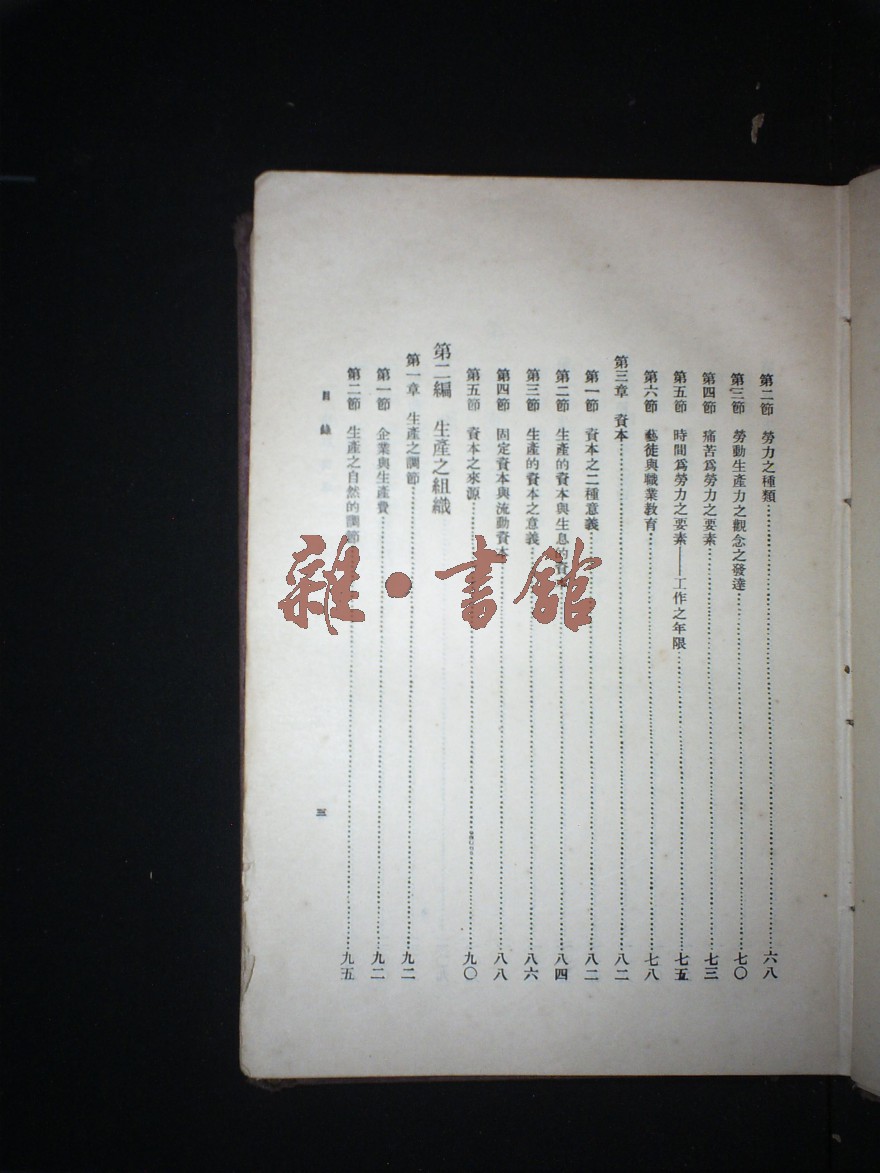 第二節　勞力之種類……六八
第三節　勞動生產力之觀念之發達……七〇
第四節　痛苦爲勞力之要素……七三
第五節　時間爲勞力之要素——工作之年限……七五
第六節　藝徒與職業教育……七八
第三章　資本……八二
第一節　資本之二種意義……八二
第二節　生產的資本與生息的資本……八四
第三節　生產的資本之意義……八六
第四節　固定資本與流動資本……八八
第五節　資本之來源……九〇
第二編　生產之組織
第一章　生產之調節……九二
第一節　企業與生產費……九二
第二節　生產之自然的調節……九五
目錄
三
雜·書館